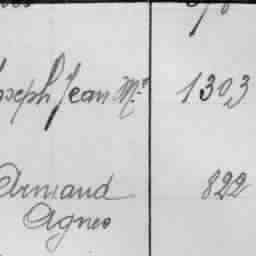 Joseph Jean M.ie 1303
Armand 822
Agnes